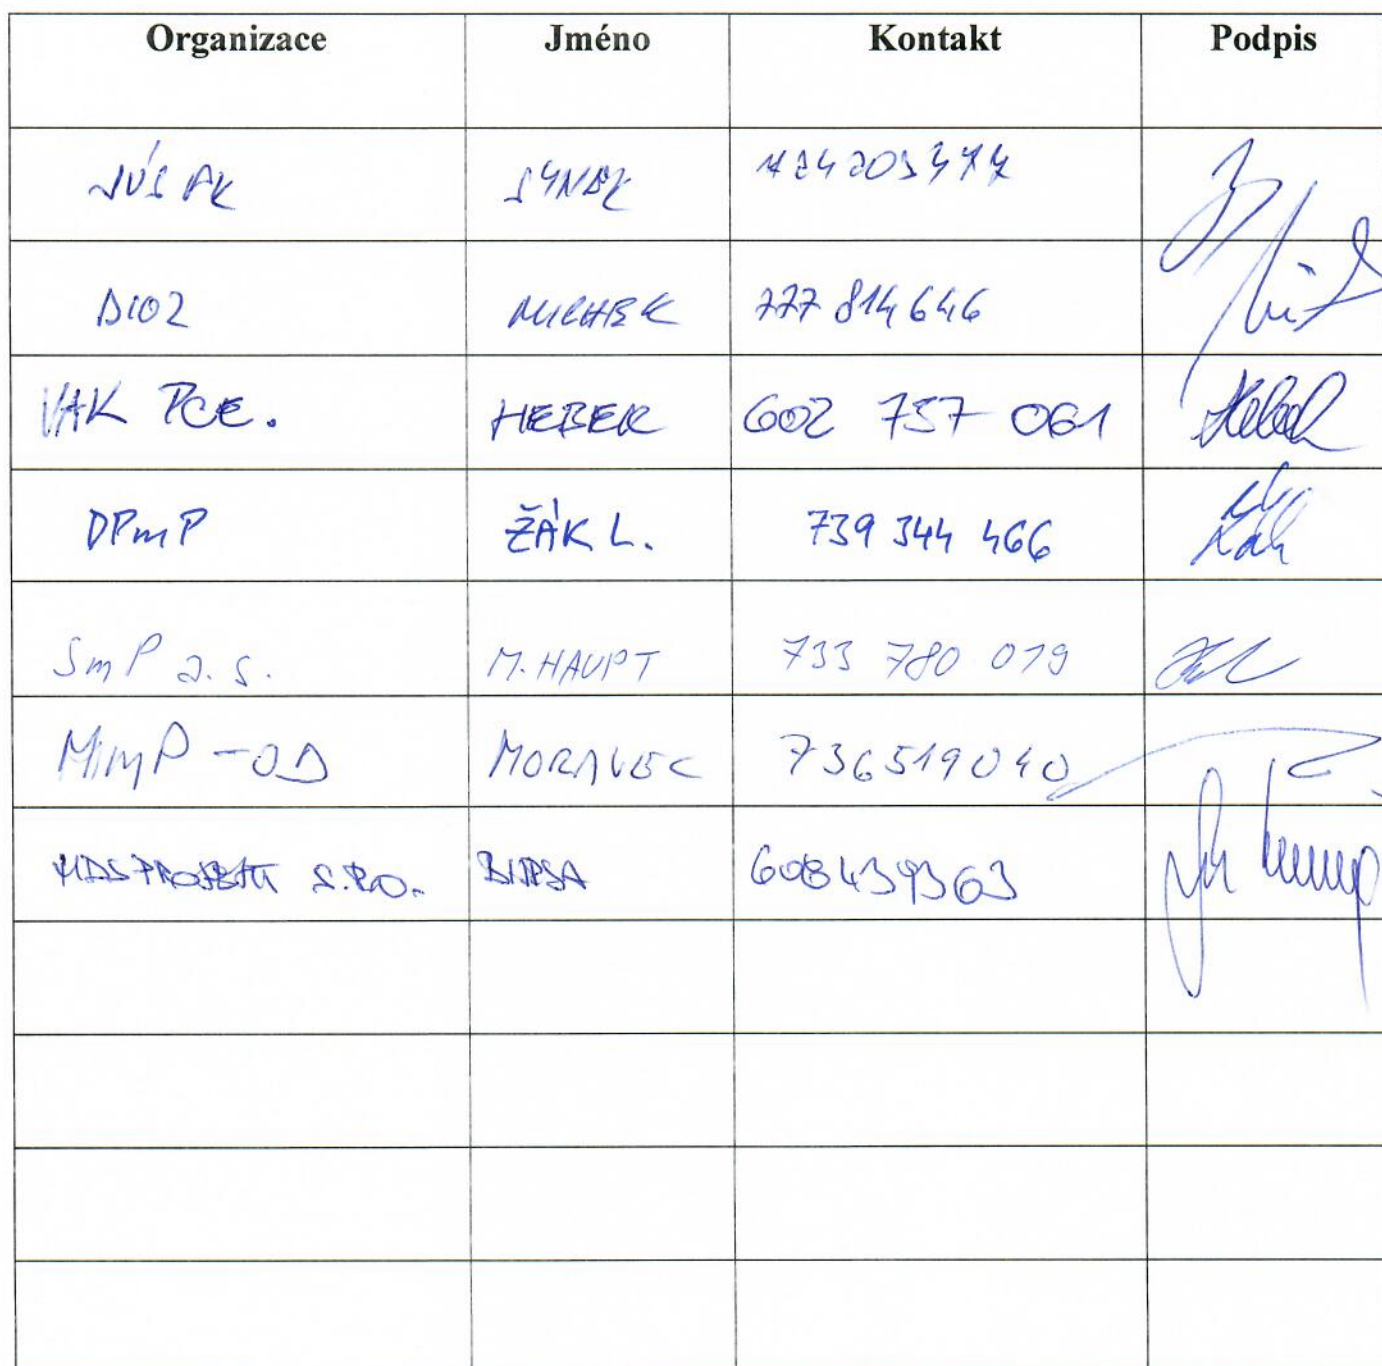 Organizace Jméno Kontakt Podpis
SÚS PK SYNEK 724203477
DIOZ MICHEK 777 814 646
VAK PCE. HEBER 602 757 061
DPmP ŽÁK L. 739 344 466 Žák
SmP a.s. M. HAUPT 733 780 019
MmP - OD MORAVEC 736519040
MDS PROJEKT S.R.O. 608439363